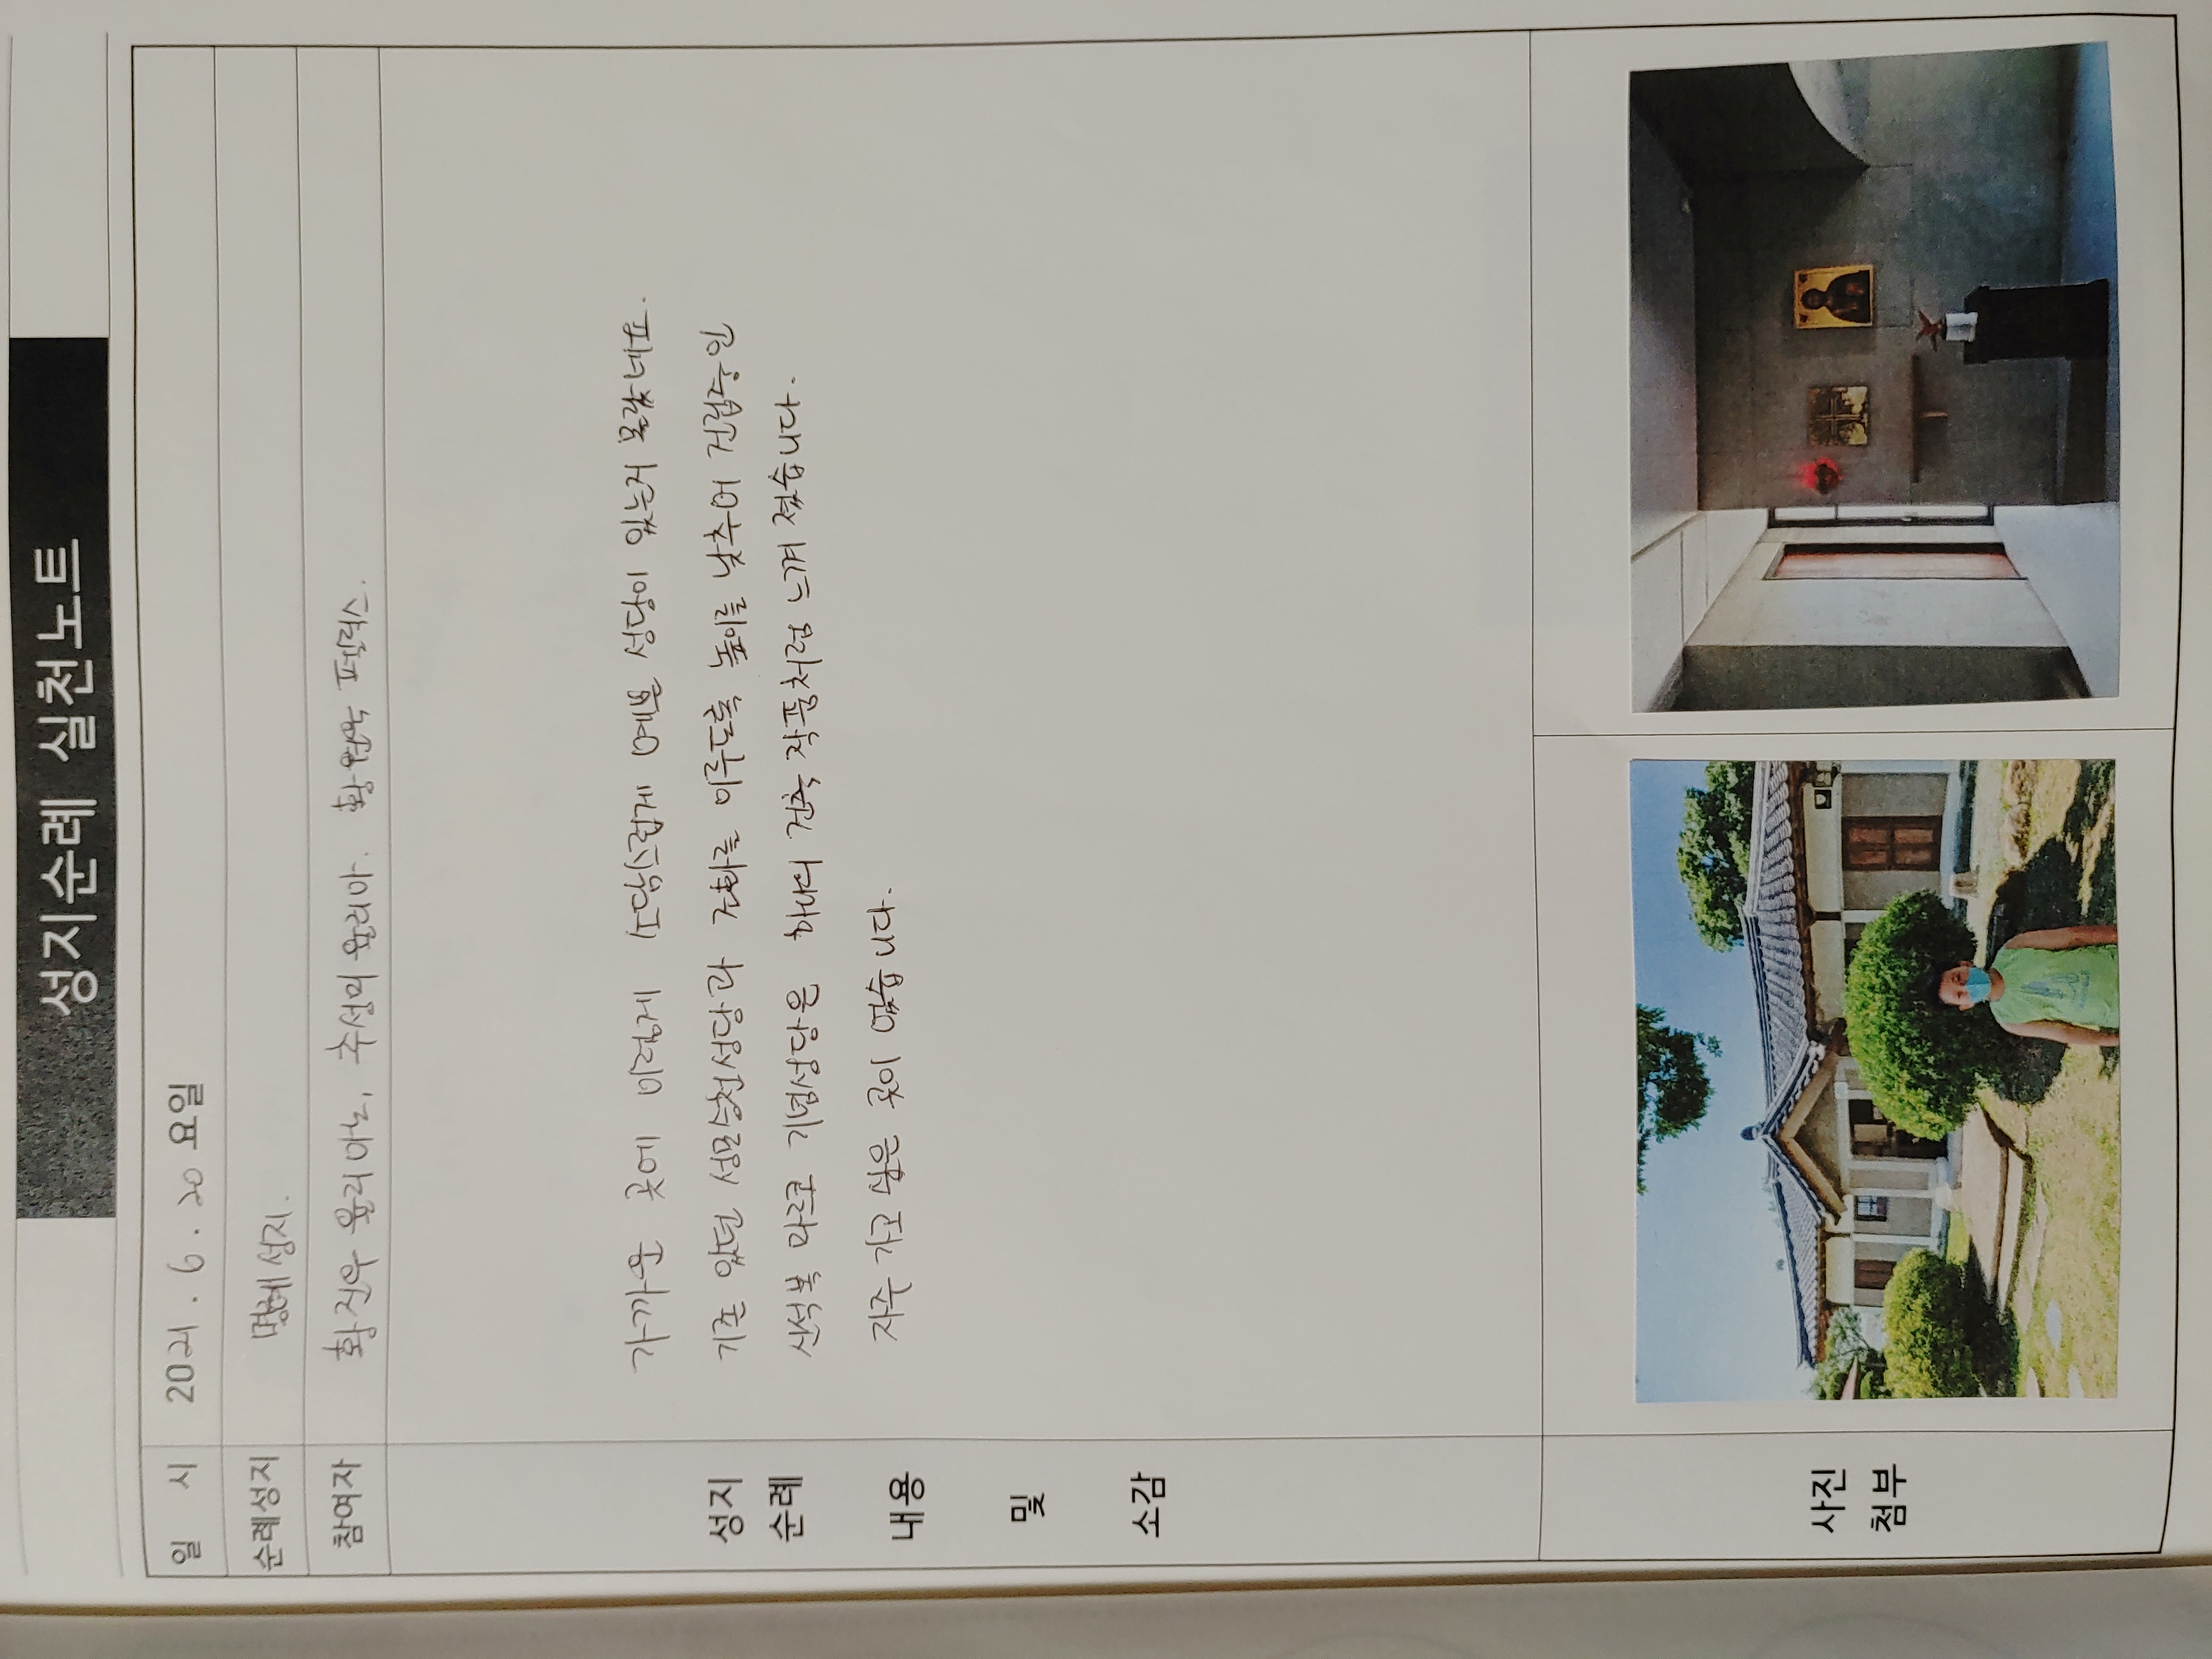 성지순례 실천노트
일 시 2021. 6. 20 요일
순례성지 명례성지.
참여자 황진우 율리아노, 추성미 율리아. 황원욱 펠릭스.
가까운 곳에 이렇게 소담스럽게 예쁜 성당이 있는거 몰랐네요.
기존 있던 성모승천성당과 조화를 이루도록 높이를 낮추어 건립중인
신석복 마르코 기념성당은 하나의 건축 작품처럼 느껴 졌습니다.
자주 가고 싶은 곳이 였습니다.
성지
순례
내용
및
소감
사진
첨부